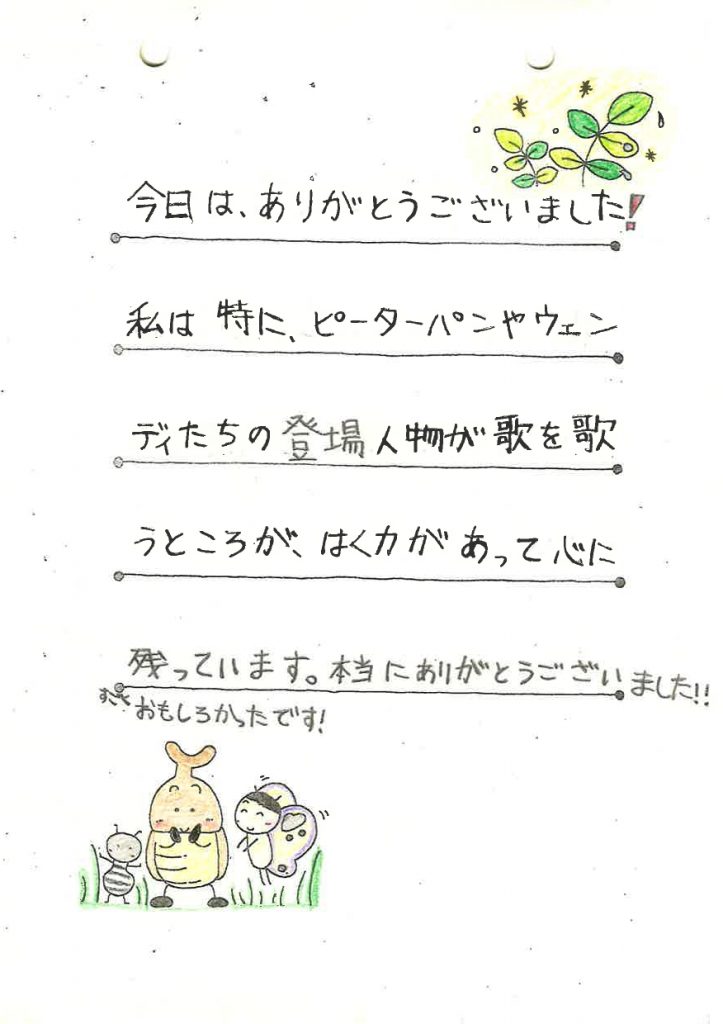 今日は、ありがとうございました!
私は特に、ピーターパンやウェン
ディたちの登場人物が歌を歌
うところが、はく力があって心に
残っています。本当にありがとうございました!!
おもしろかったです!